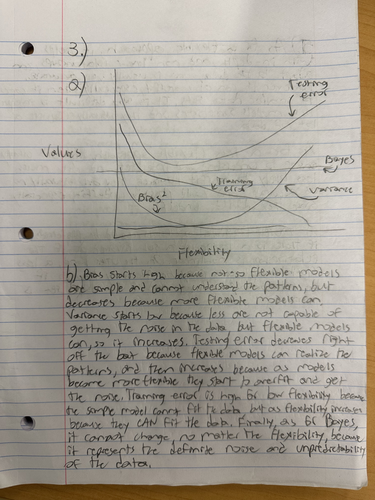 3.)
a)
Testing
error
Values
Bayes
Training
error
Bias²
Variance
Flexibility
b) Bias starts high because not so flexible models
are simple and cannot understand the patterns, but
decreases because more flexible models can.
Variance starts low because less are not capable of
getting the noise in the data, but flexible models
can, so it increases. Testing error decreases right
off the bat because flexible models can realize the
patterns, and then increases because as models
become more flexible they start to overfit and get
the noise. Training error is high for low flexibility because
the simple model cannot fit the data but as flexibility increases
because they CAN fit the data. Finally, as for Bayes,
it cannot change, no matter the flexibility, because
it represents the definite noise and unpredictability
of the data.